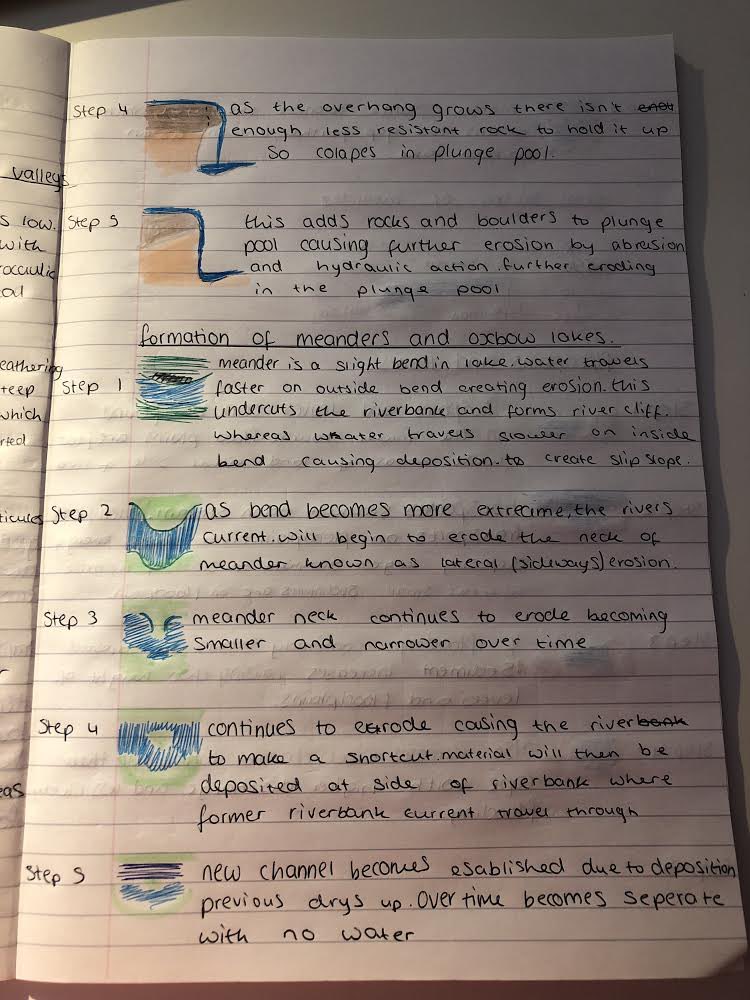 valleys
s low.
with
al
eathering
teep
which
Step 4 as the overhang grows there isn't
enough less resistant rock to hold it up
So colapes in plunge pool.
Step 5 this adds rocks and boulders to plunge
pool causing further erosion by abrasion
and hydraulic action. further eroding
in the plunge pool
formation of meanders and oxbow lakes.
Step 1 meander is a slight bend in lake. water travels
faster on outside bend creating erosion. this
undercuts the riverbank and forms river cliff.
whereas water travels slower on inside
bend causing deposition. to create slip slope.
Step 2 as bend becomes more extrecime, the rivers
current. will begin to erode the neck of
meander known as lateral (sideways) erosion.
Step 3 meander neck continues to erode becoming
Smaller and narrower over time
Step 4 continues to erode casing the river bank
to make a shortcut. material will then be
deposited at side of riverbank where
former riverbank current travel through
Step 5 new channel becomes esablished due to deposition
previous drys up. Over time becomes seperate
with no water